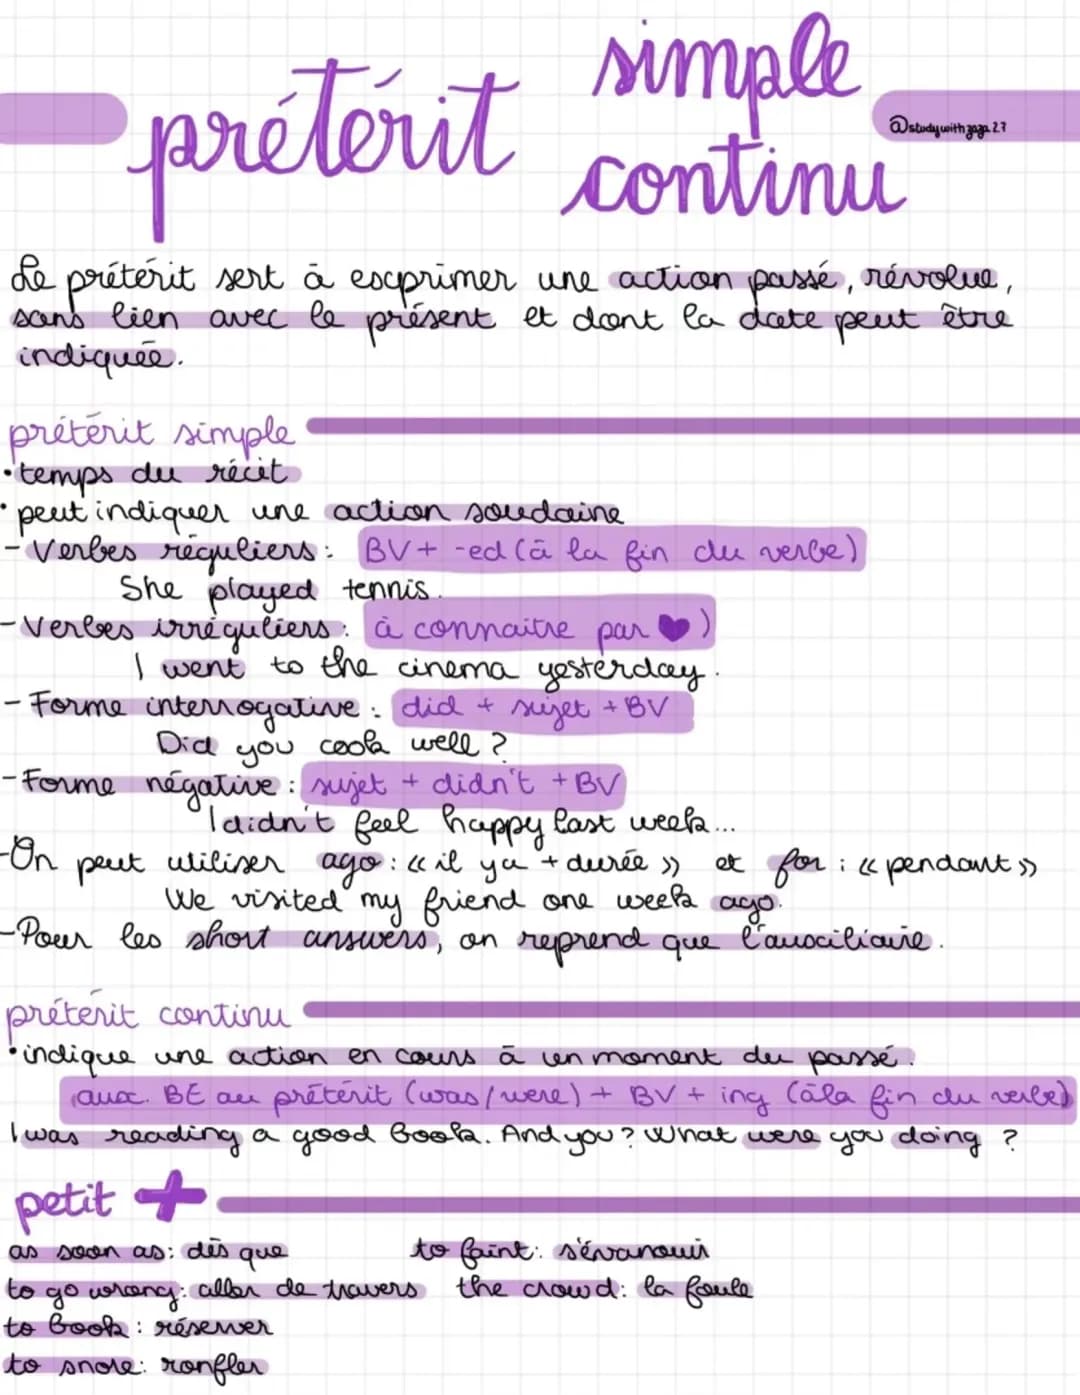 prétérit simple
continu
@studywithzaza.27
Le prétérit sert à exprimer une action passé, révolue,
sans lien avec le présent et dont la date peut être
indiquée.
prétérit simple
•temps du récit
•peut indiquer une action soudaine
- Verbes réguliers : BV+ -ed (à la fin du verbe)
She played tennis.
- Verbes irréguliers : à connaitre par ♥)
I went to the cinema yesterday.
- Forme interrogative : did + sujet + BV
Did you cook well ?
- Forme négative : sujet + didn't + BV
I didn't feel happy last week...
-On peut utiliser ago : « il ya + durée » et for : « pendant »
We visited my friend one week ago.
-Pour les short answers, on reprend que l'auxiliaire.
prétérit continu
•indique une action en cours à un moment du passé.
(aux. BE au prétérit (was/were) + BV + ing (àla fin du verbe)
I was reading a good book. And you ? What were you doing ?
petit +
as soon as : dès que
to faint : s'évanouir
to go wrong : aller de travers
the crowd : la foule
to book : réserver
to snore : ronfler